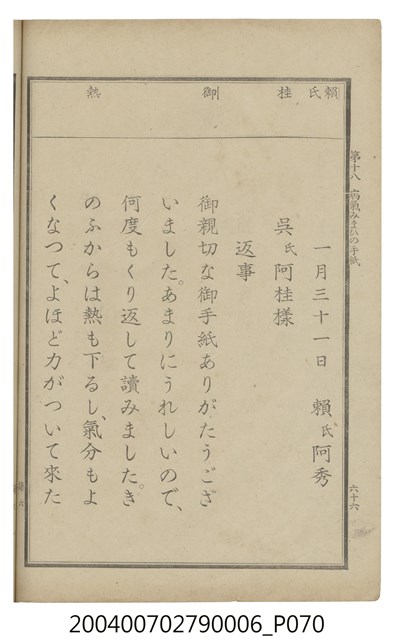 賴氏
桂
御
熱
第十八 病氣みまひの手紙
六十六
一月三十一日 賴氏阿秀
吳氏阿桂樣
返事
御親切な御手紙ありがたうござ
いました。あまりにうれしいので、
何度もくり返して讀みました。き
のふからは熱も下るし、氣分もよ
くなつて、よほど力がついて來た
200400702790006_P070